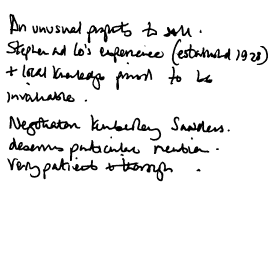 An unusual property to sell.
Stephen and Co's experience (established 1928)
+ local knowledge proved to be
invaluable.
Negotiator Kimberley Sanders.
deserves particular mention.
Very patient & thorough.